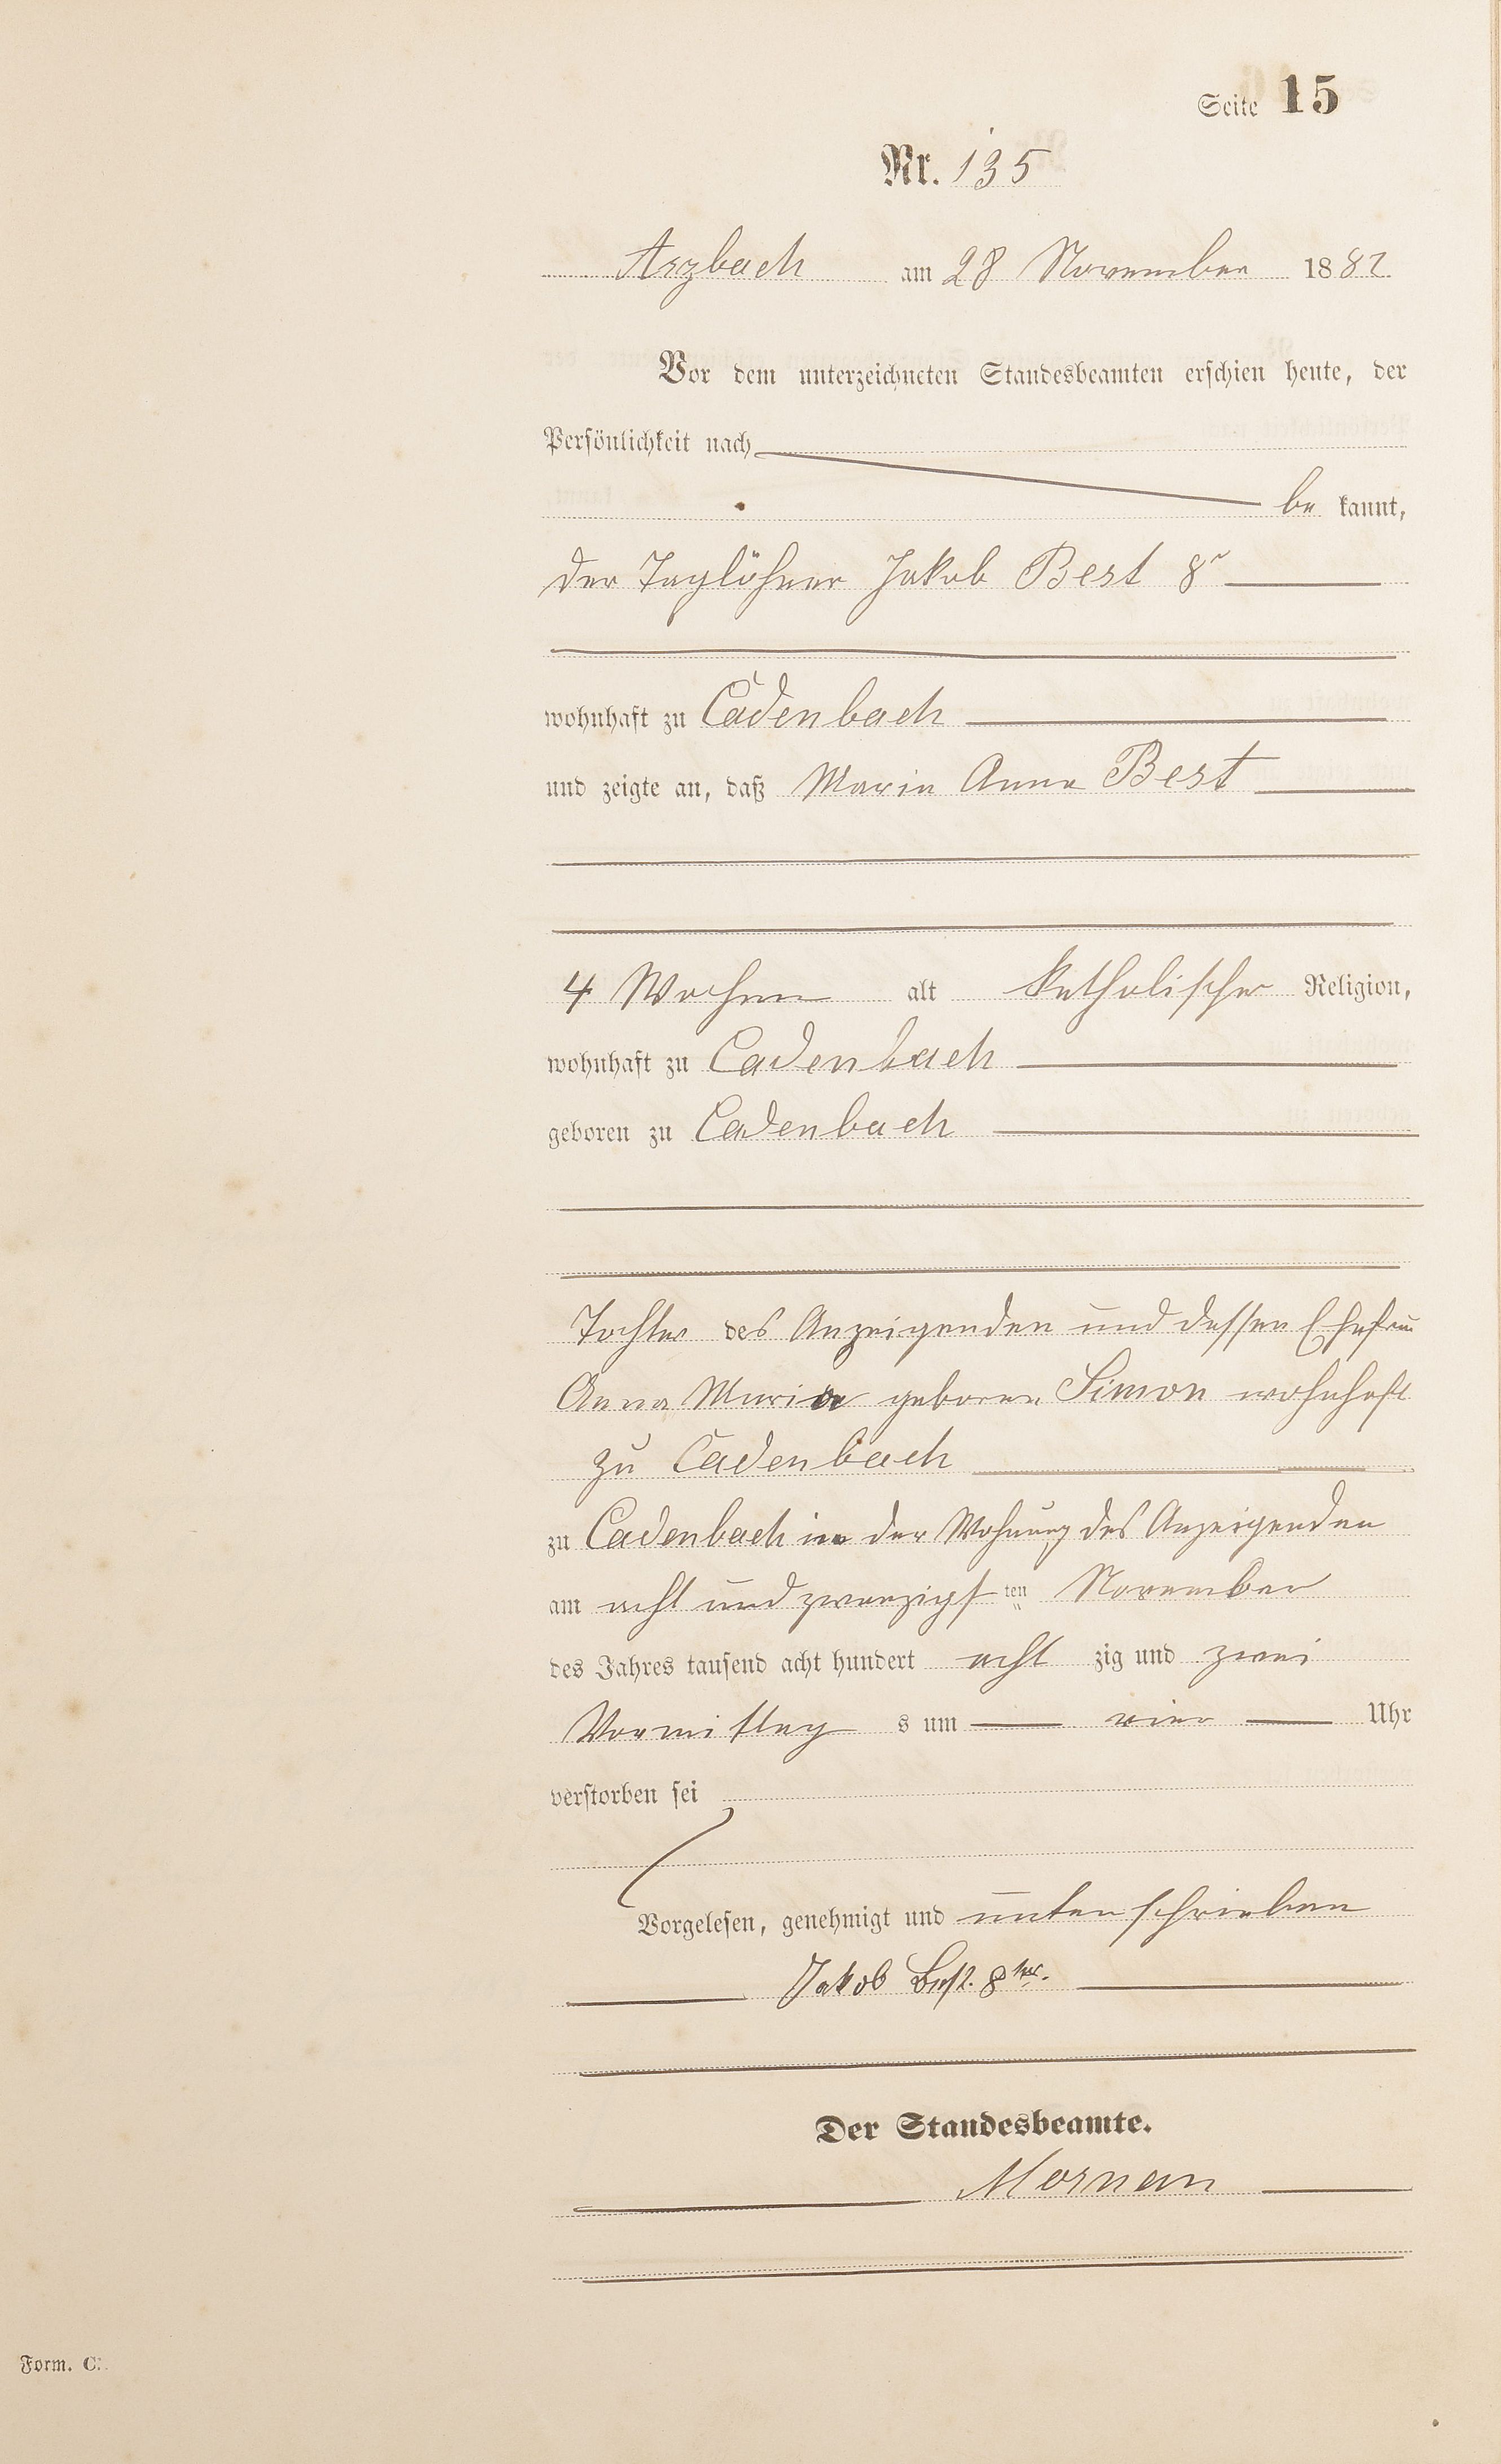 Seite 15
Nr. 135
Arzbach am 28 November 1882
Vor dem unterzeichneten Standesbeamten erschien heute, der
Persönlichkeit nach
be kannt,
der Taglöhner Jakob Best 8r
wohnhaft zu Cadenbach
und zeigte an, daß Maria Anna Best
4 Wochen alt katholischer Religion,
wohnhaft zu Cadenbach
geboren zu Cadenbach
Tochter des Anzeigenden und dessen Ehefrau
Anna Maria geborene Simon wohnhaft
zu Cadenbach
zu Cadenbach in der Wohnung des Anzeigenden
am acht und zwanzigsten November
des Jahres tausend acht hundert acht zig und zwei
Vormittag s um vier Uhr
verstorben sei
Vorgelesen, genehmigt und unterschrieben
Jakob Best. 8ter.
Der Standesbeamte.
Form. C.